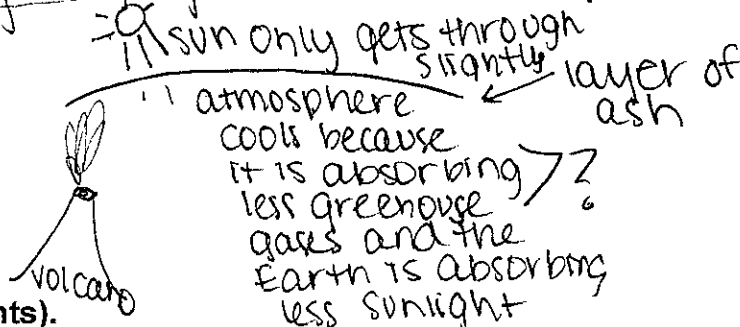 sun only gets through
slightly
layer of
ash
atmosphere
cools because
it is absorbing
less greenouse
gases and the
Earth is absorbing
less sunlight
?
volcano
nts).